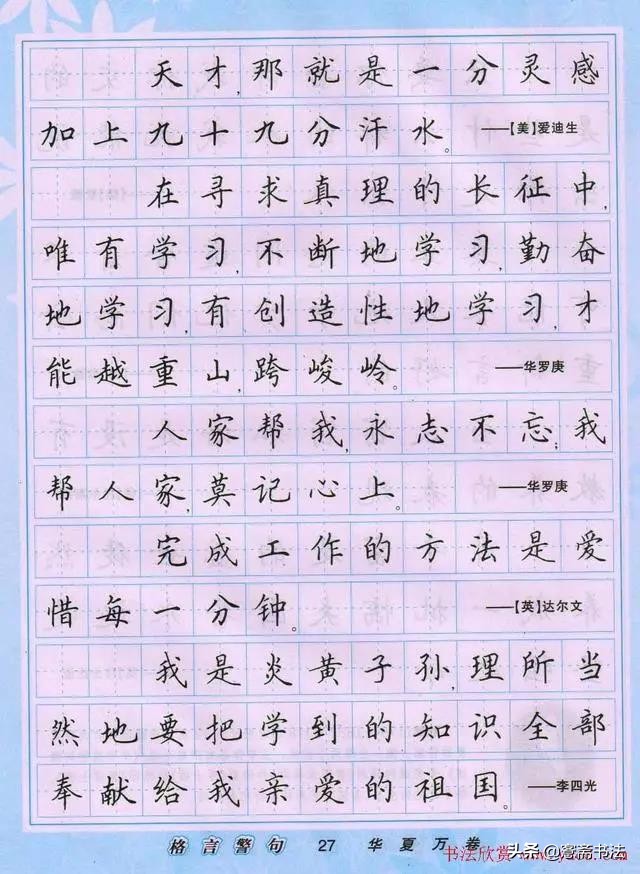 天才,那就是一分灵感
加上九十九分汗水。 ——【美】爱迪生
在寻求真理的长征中,
唯有学习,不断地学习,勤奋
地学习,有创造性地学习,才
能越重山,跨峻岭。 ——华罗庚
人家帮我,永志不忘;我
帮人家,莫记心上。 ——华罗庚
完成工作的方法是爱
惜每一分钟。 ——【英】达尔文
我是炎黄子孙,理所当
然地要把学到的知识全部
奉献给我亲爱的祖国。 ——李四光
格言警句 27 华夏万卷
书法欣赏
头条@謇斋书法